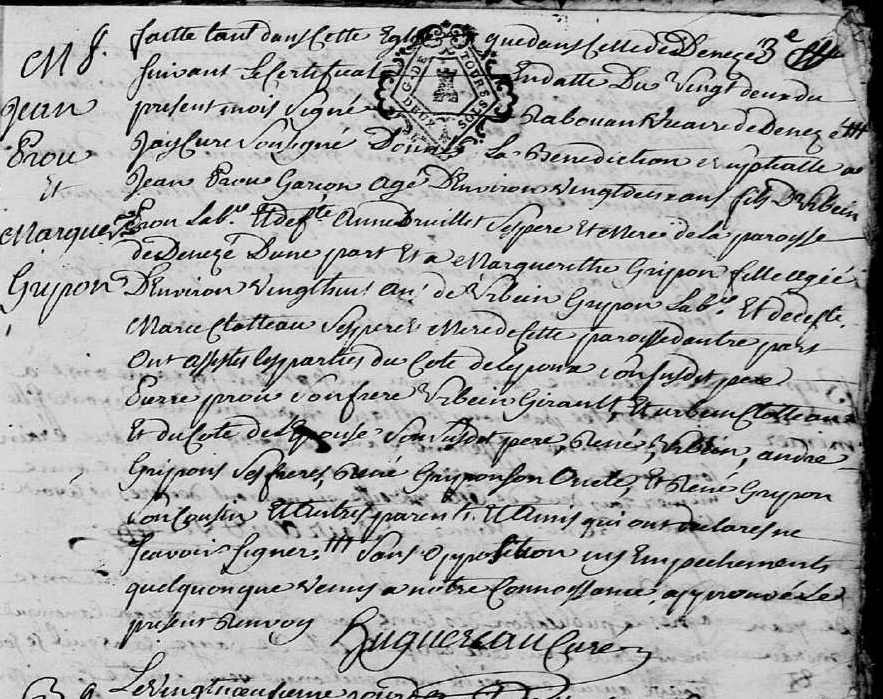 M g.
Jean
Prou
Et
Marguerite
Gripon
faitte tant dans Cette Eglise que dans Celle de Denezé
Suivant Le Certificat En datte Du Vingt deux du
present mois Signé Rabouan Vicaire de Denezé ///
Jay Curé Soussigné Donné La Benediction Nuptialle a
Jean Prou Garçon agé D'Environ Vingt deux ans fils D'Urbein
Prou Lab. Et de fte Anne Druillet Ses pere Et Mere de la paroisse
de Denezé Dune part Et a Marguerithe Gripon fille agée
D'Environ Vingt huit ans de Urbein Gripon Lab. Et de
Marie Clotteau Ses pere Mere de Cette paroisse dautre part
Ont assistes les parties du Coté de Lepoux Son Susdit pere
Pierre prou Son frere Urbein Girault, Et urbein Clotteau
Et du Coté de L'Epouse Son Susdit pere René, Urbein, andre
Gripons Ses freres, René Gripon Son Oncle, Et René Gripon
Son Cousin Et Autres parents Et Amis qui ont declares ne
Scavoir Signer, /// Sans Opposition ny Empechements
quelquonque Venus a notre Connoissance, approuvés Le
present Renvoy
Huguereau Curé
G. DE TOURS
DEUX SOLS
Le Vingt neufieme jour